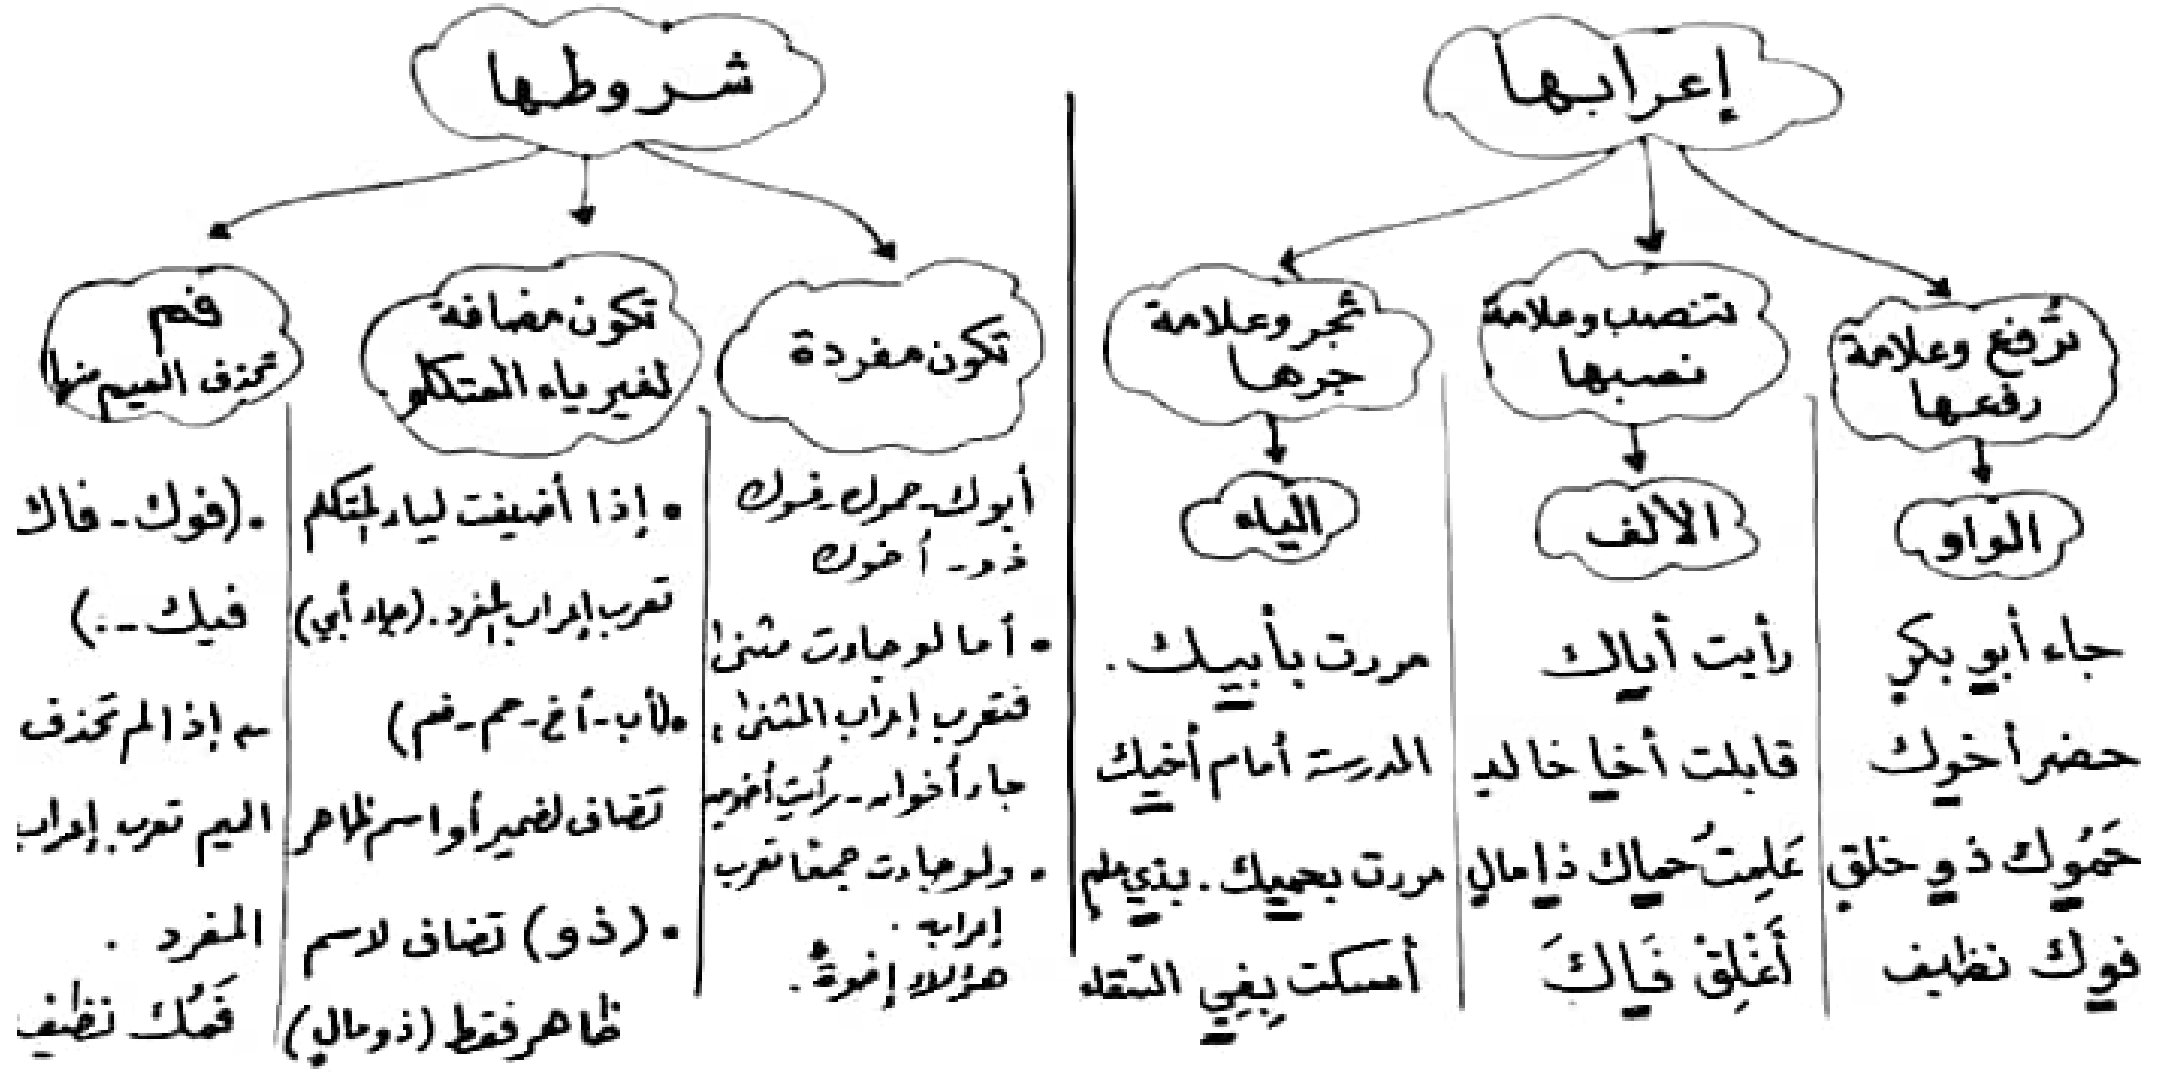 إعرابها
تُرفع وعلامة
رفعها
الواو
جاء أبو بكرٍ
حضر أخوك
حَمُوك ذو خلقٍ
فوك نظيف
تنصب وعلامة
نصبها
الألف
رأيت أباك
قابلت أخا خالد
عَلِمتُ حماك ذا مالٍ
أَغْلِقْ فَاكَ
تُجر وعلامة
جرها
الياء
مررت بأبيك.
المدرسة أمام أخيك
مررت بحميك. بذي علم
أمسكت بِفِي السقاء
شروطها
تكون مفردة
أبوك - حموك - فوك
ذو - أخوك
• أما لو جاءت مثنى
فتعرب إعراب المثنى،
جاء أخوان - رأيت أخوين
• ولو جاءت جمعًا تعرب
إعرابه.
هؤلاء إخوةٌ.
تكون مضافة
لغير ياء المتكلم
• إذا أضيفت لياء المتكلم
تعرب إعراب المفرد. (جاء أبي)
• (أب - أخ - حم - فم)
تضاف لضمير أو اسم ظاهر
• (ذو) تضاف لاسم
ظاهر فقط (ذو مالٍ)
فم
تحذف الميم منها
• (فوك - فاك
فيك - ..)
إذا لم تحذف
الميم تعرب إعراب
المفرد.
فَمُك نظيف